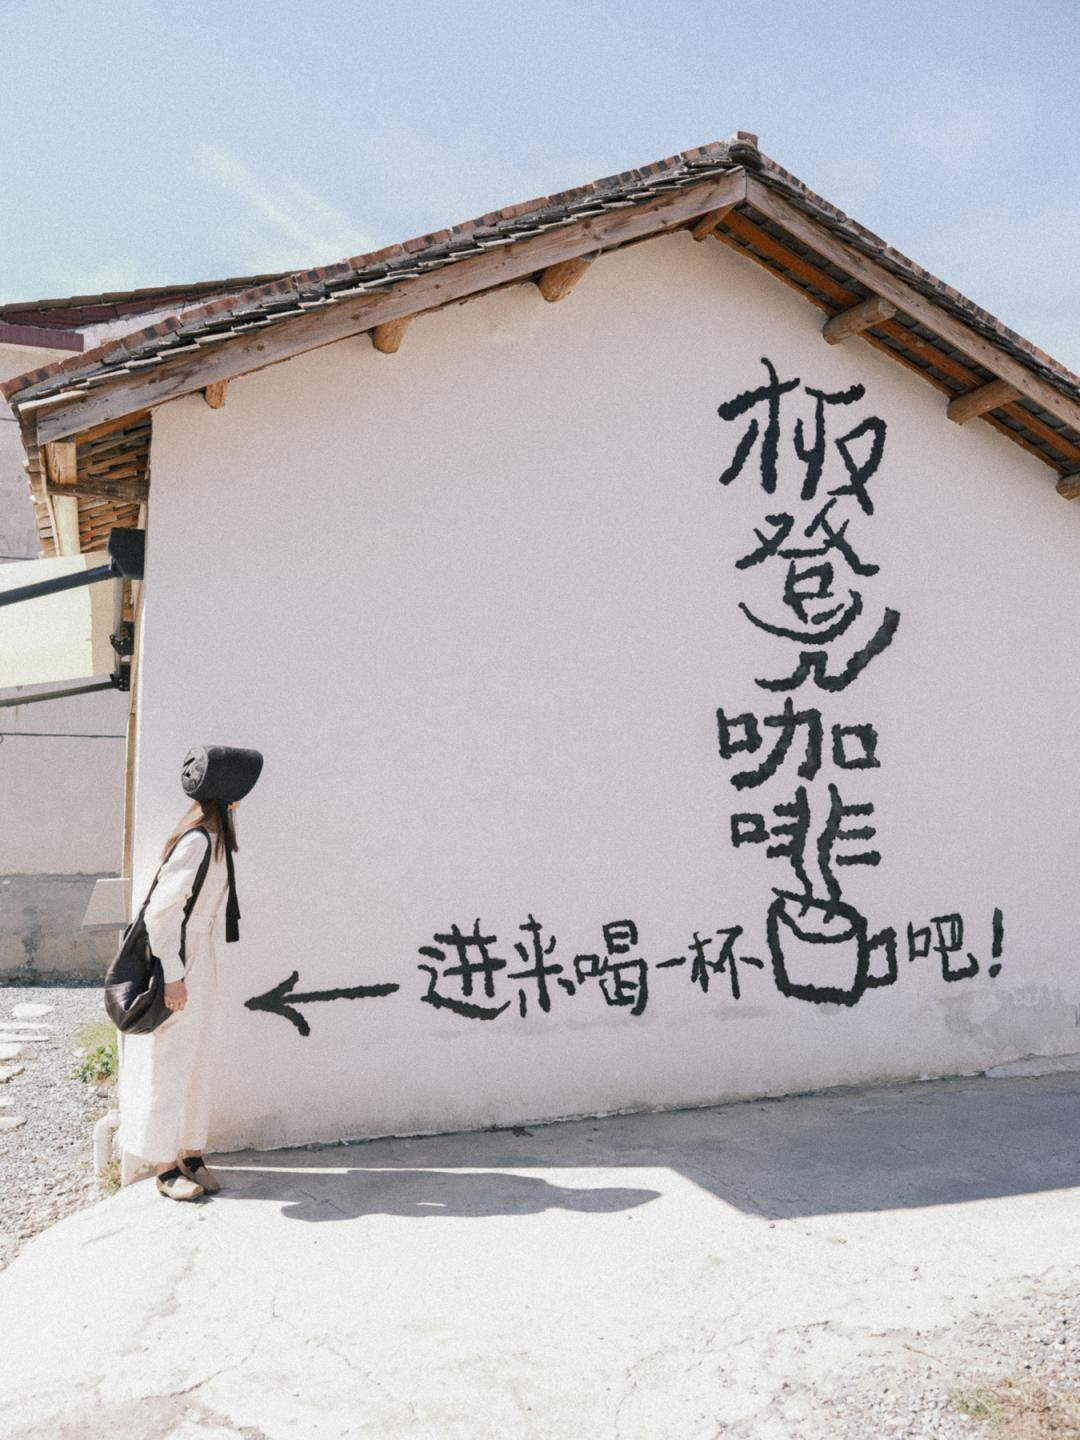 板凳咖啡
进来喝一杯吧！